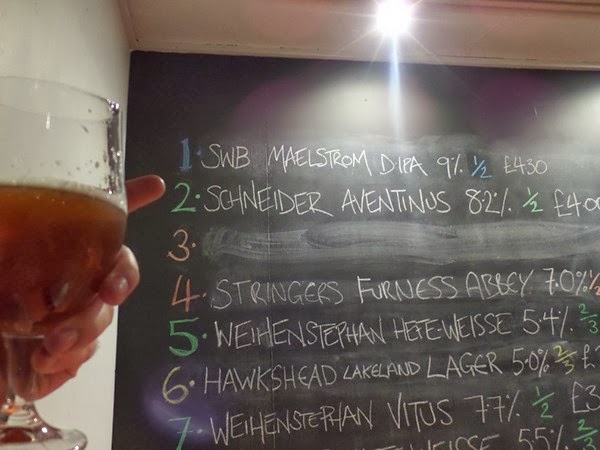 1. SWB MAELSTROM DIPA 9% 1/2 £430
2. SCHNEIDER AVENTINUS 8.2% 1/2 £400
3.
4. STRINGERS FURNESS ABBEY 7.0% 1/2
5. WEIHENSTEPHAN HEFE-WEISSE 5.4% 2/3
6. HAWKSHEAD LAKELAND LAGER 5.0% 2/3 £
7. WEIHENSTEPHAN VITUS 7.7% 1/2 £3
WEISSE 5.5% 2/3